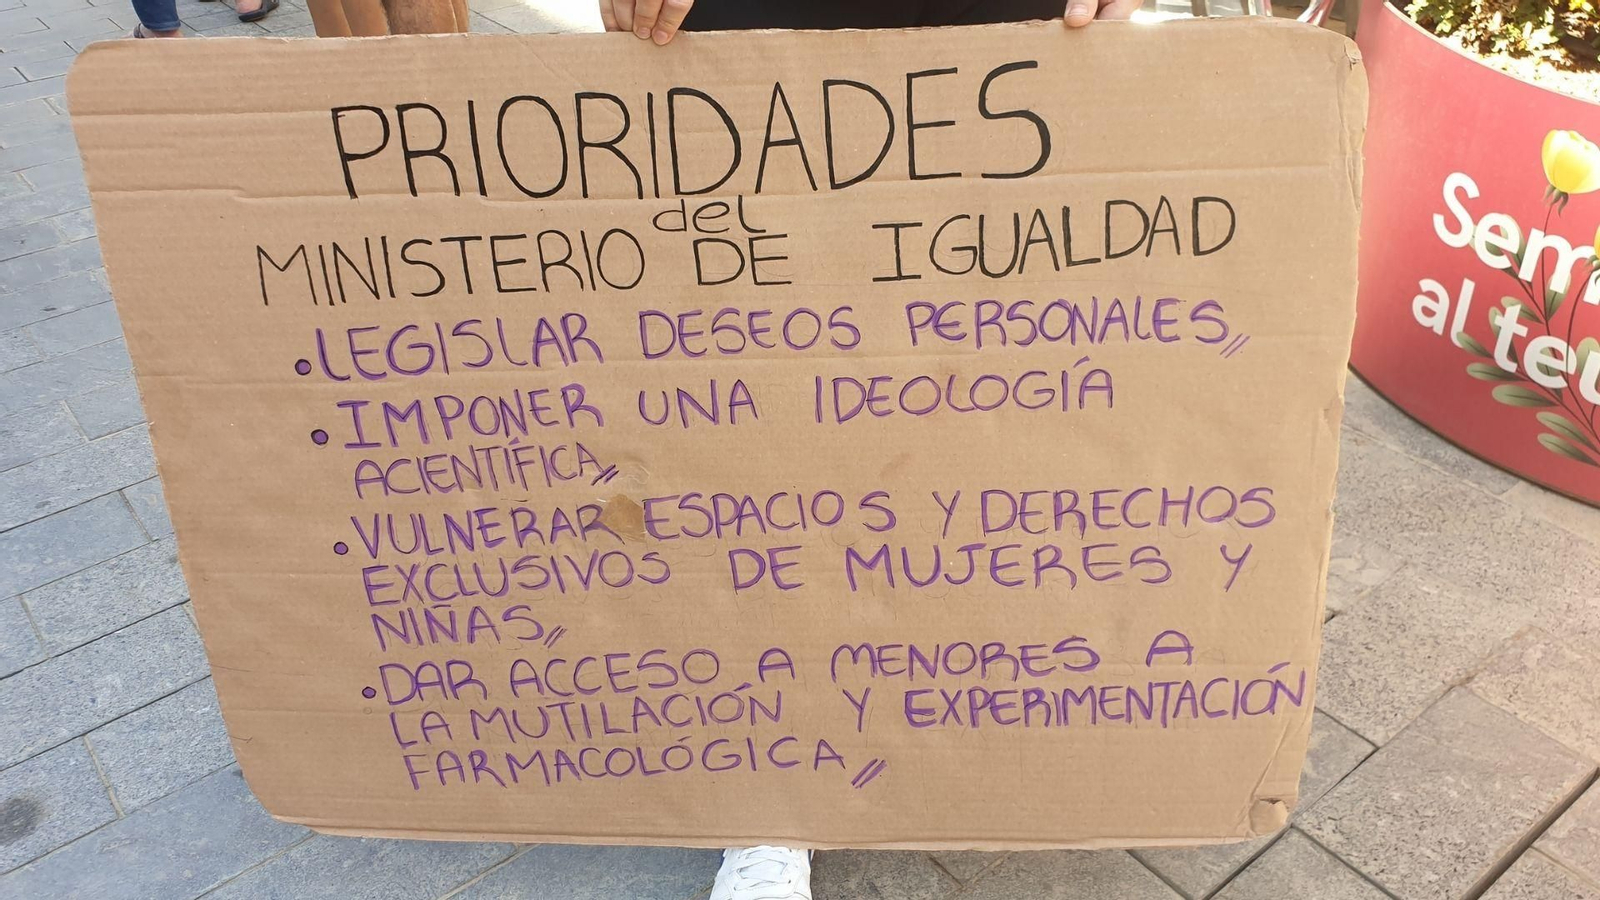 PRIORIDADES
del
MINISTERIO DE IGUALDAD
• LEGISLAR DESEOS PERSONALES,,
• IMPONER UNA IDEOLOGÍA
ACIENTÍFICA,,
• VULNERAR ESPACIOS Y DERECHOS
EXCLUSIVOS DE MUJERES Y
NIÑAS,,
• DAR ACCESO A MENORES A
LA MUTILACIÓN Y EXPERIMENTACIÓN
FARMACOLÓGICA,,
al